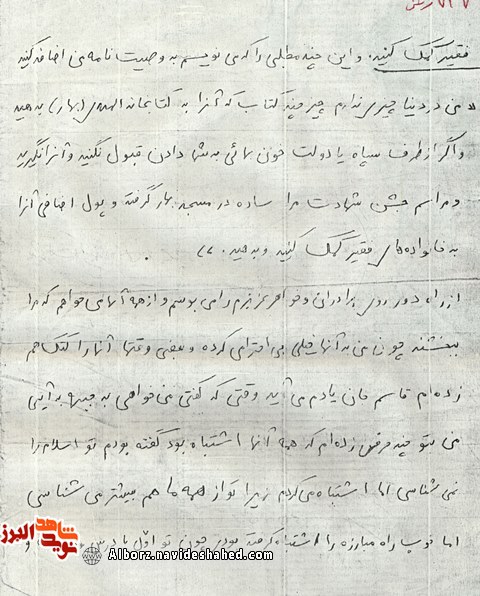 فقیر کمک کنید. و این چند مطلبی را که می نویسم به وصیت نامه من اضافه کنید
« من در دنیا چیزی ندارم جز چند کتاب که آنرا به کتابخانه المهدی (بهار) بدهید
و اگر از طرف سپاه یا دولت خون بهائی به شما دادن قبول نکنید و آنرا نگیرید
و مراسم جشن شهادت مرا ساده در مسجد بهار گرفته و پول اضافی آنرا
به خانواده های فقیر کمک کنید و بدهید. »
از راه دور روی برادران و خواهر عزیزم را می بوسم و از همه آنها می خواهم که مرا
ببخشند چون من به آنها خیلی بی احترامی کرده و بعضی وقتها آنها را کتک هم
زده ام قاسم جان یادم می آید وقتی که گفتی می خواهی به جبهه بیآیی
من بتو چند حرفی زده ام که همه آنها اشتباه بود گفته بودم تو اسلام را
نمی شناسی اما اشتباه می کردم زیرا تو از همه ما هم بیشتر می شناسی
اما خوب راه مبارزه را اشتباه گرفته بودی چون تو اول باید درس
شاهد
نوید
البرز
Alborz.navideshahed.com